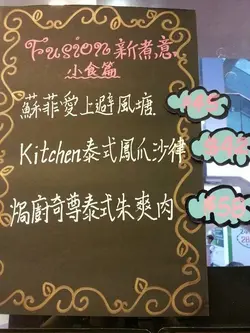 Fusion 新煮意
小食篇
蘇菲愛上避風塘
Kitchen泰式鳳爪沙律
焗廚奇尊泰式朱爽肉
$58